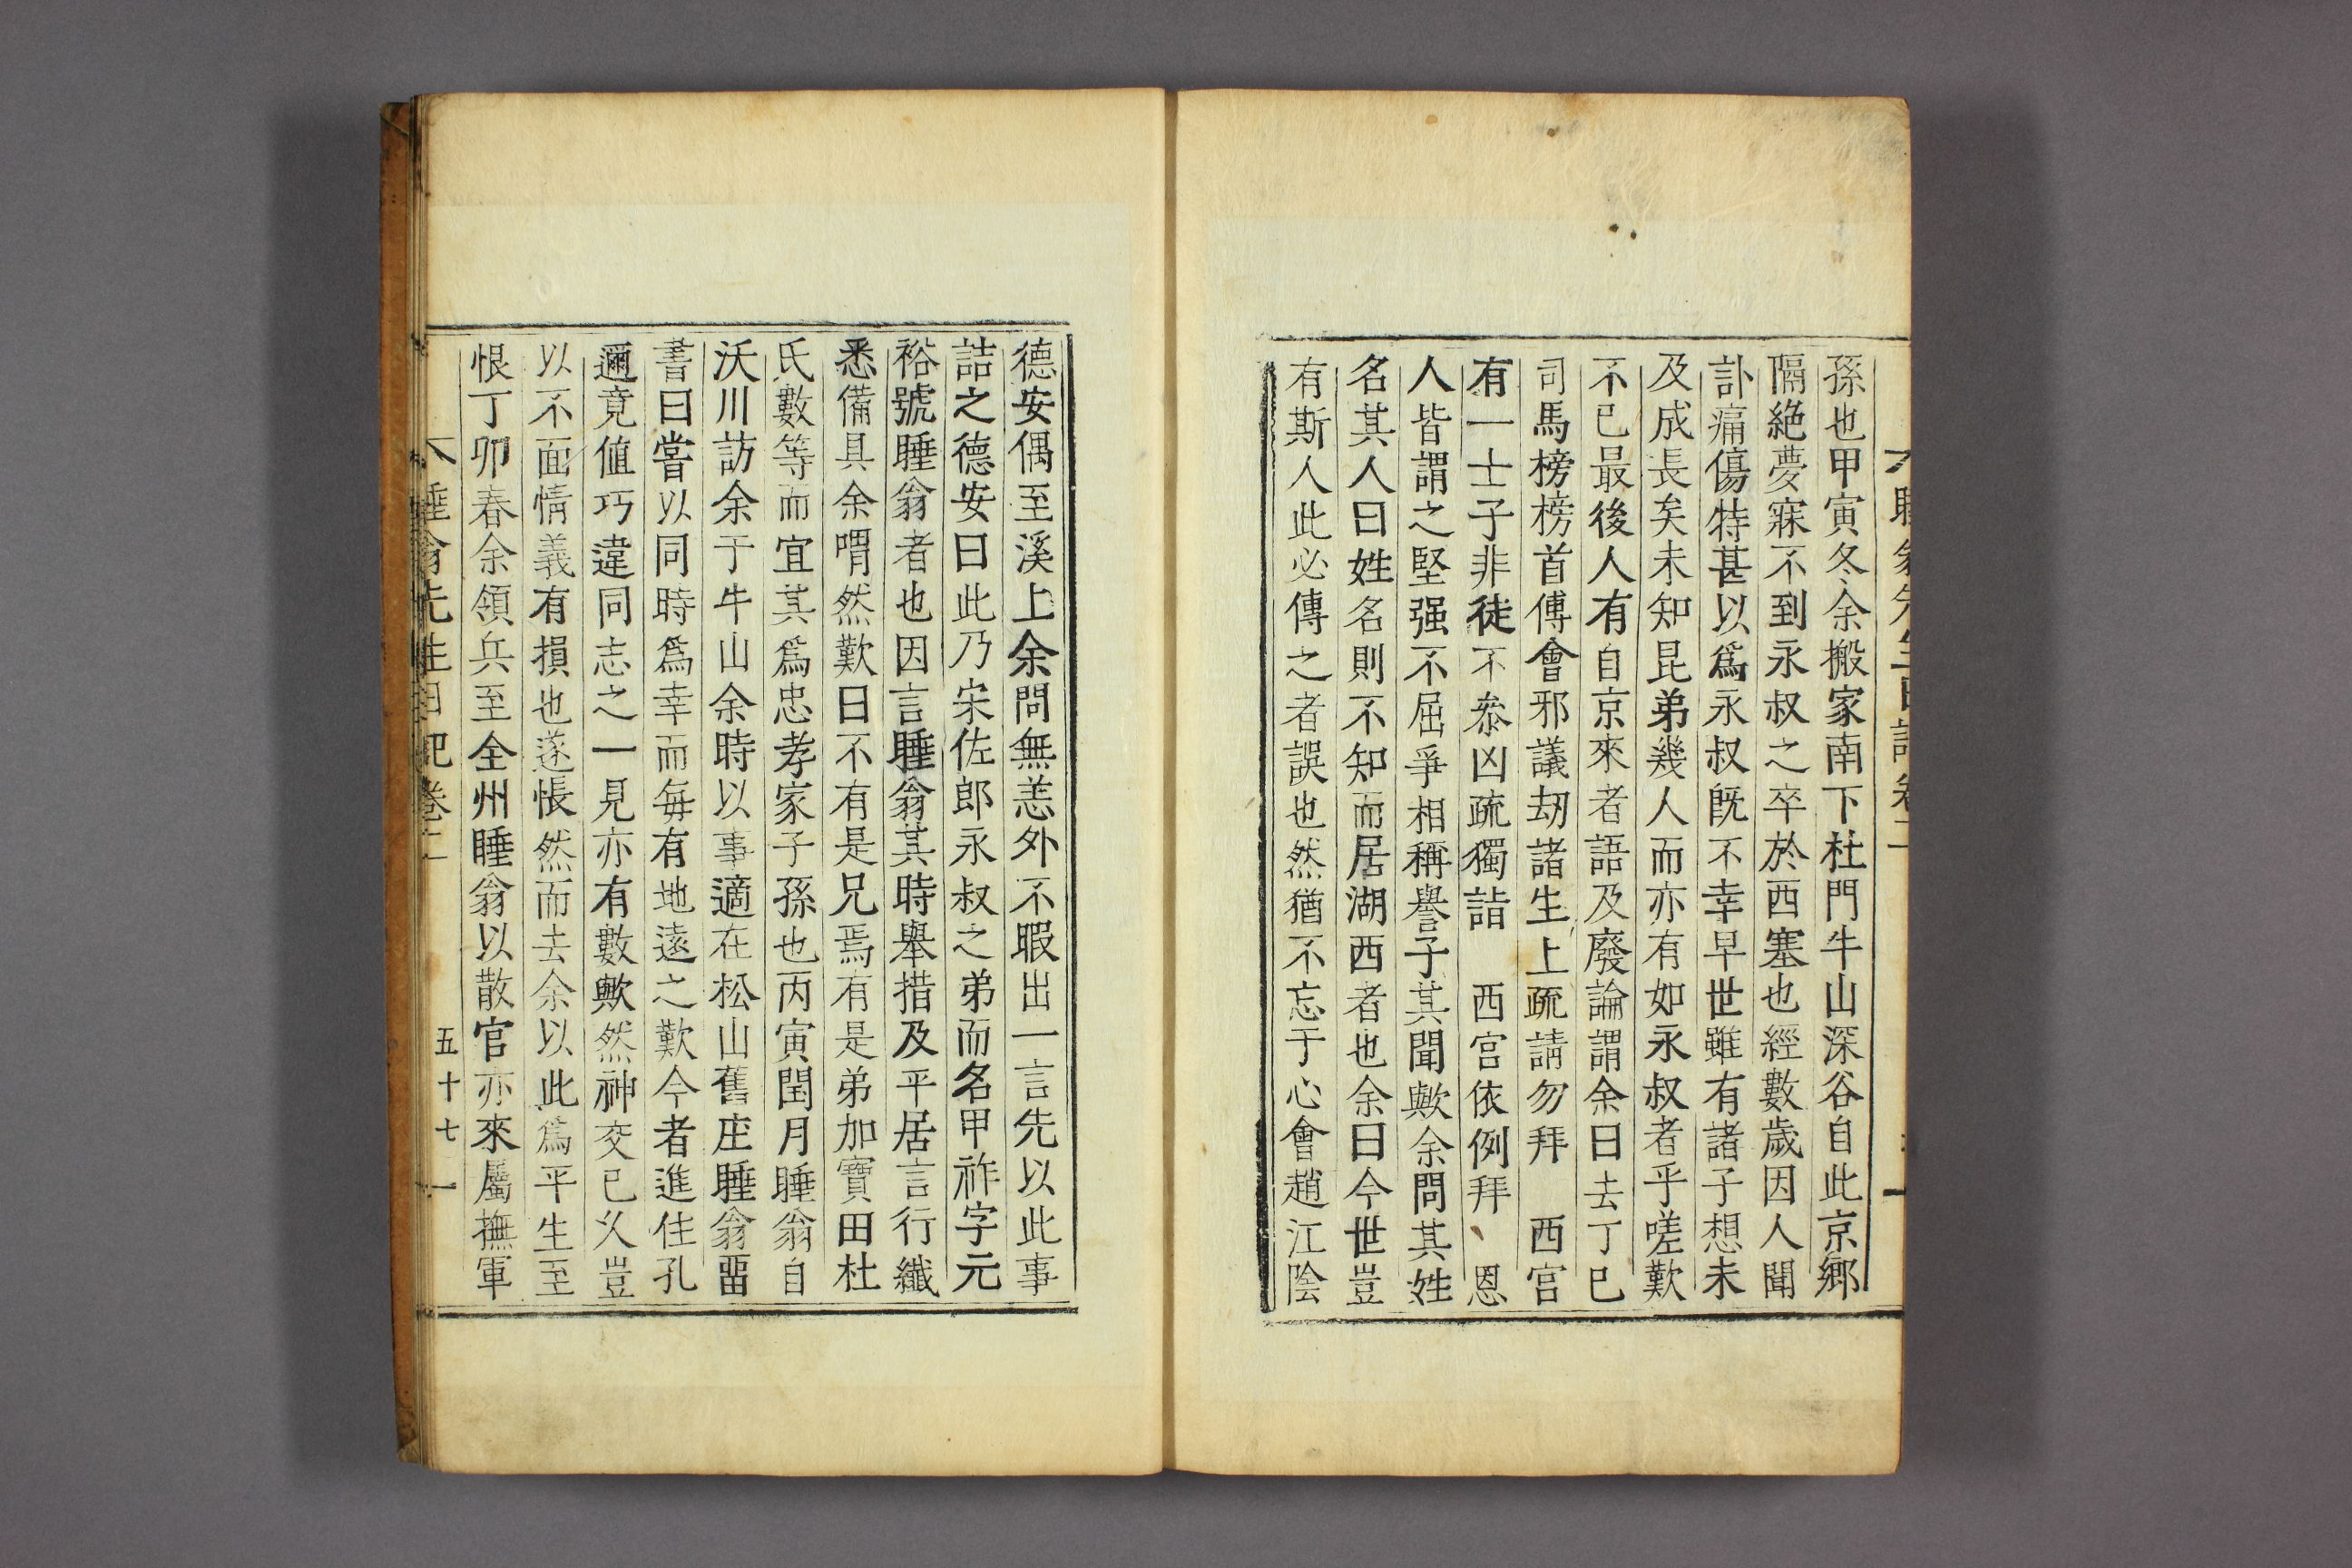 孫也甲寅冬余搬家南下杜門牛山深谷自此京鄕
隔絶夢寐不到永叔之卒於西塞也經數歲因人聞
訃痛傷特甚以爲永叔旣不幸早世雖有諸子想未
及成長矣未知昆弟幾人而亦有如永叔者乎嗟歎
不已最後人有自京來者語及廢論謂余曰去丁巳
司馬榜榜首傅會邪議刼諸生上疏請勿拜 西宮
有一士子非徒不叅凶疏獨詣 西宮依例拜 恩
人皆謂之堅强不屈爭相稱譽子其聞歟余問其姓
名其人曰姓名則不知而居湖西者也余曰今世豈
有斯人此必傳之者誤也然猶不忘于心會趙江陰
德安偶至溪上余問無恙外不暇出一言先以此事
詰之德安曰此乃宋佐郎永叔之弟而名甲祚字元
裕號睡翁者也因言睡翁其時舉措及平居言行纖
悉備具余喟然歎曰不有是兄焉有是弟加寶田杜
氏數等而宜其爲忠孝家子孫也丙寅閏月睡翁自
沃川訪余于牛山余時以事適在松山舊庄睡翁畱
書曰嘗以同時爲幸而每有地遠之歎今者進住孔
邇竟値巧違同志之一見亦有數歟然神交已久豈
以不面情義有損也遂悵然而去余以此爲平生至
恨丁卯春余領兵至全州睡翁以散官亦來屬撫軍
睡翁先生日記卷二 五十七